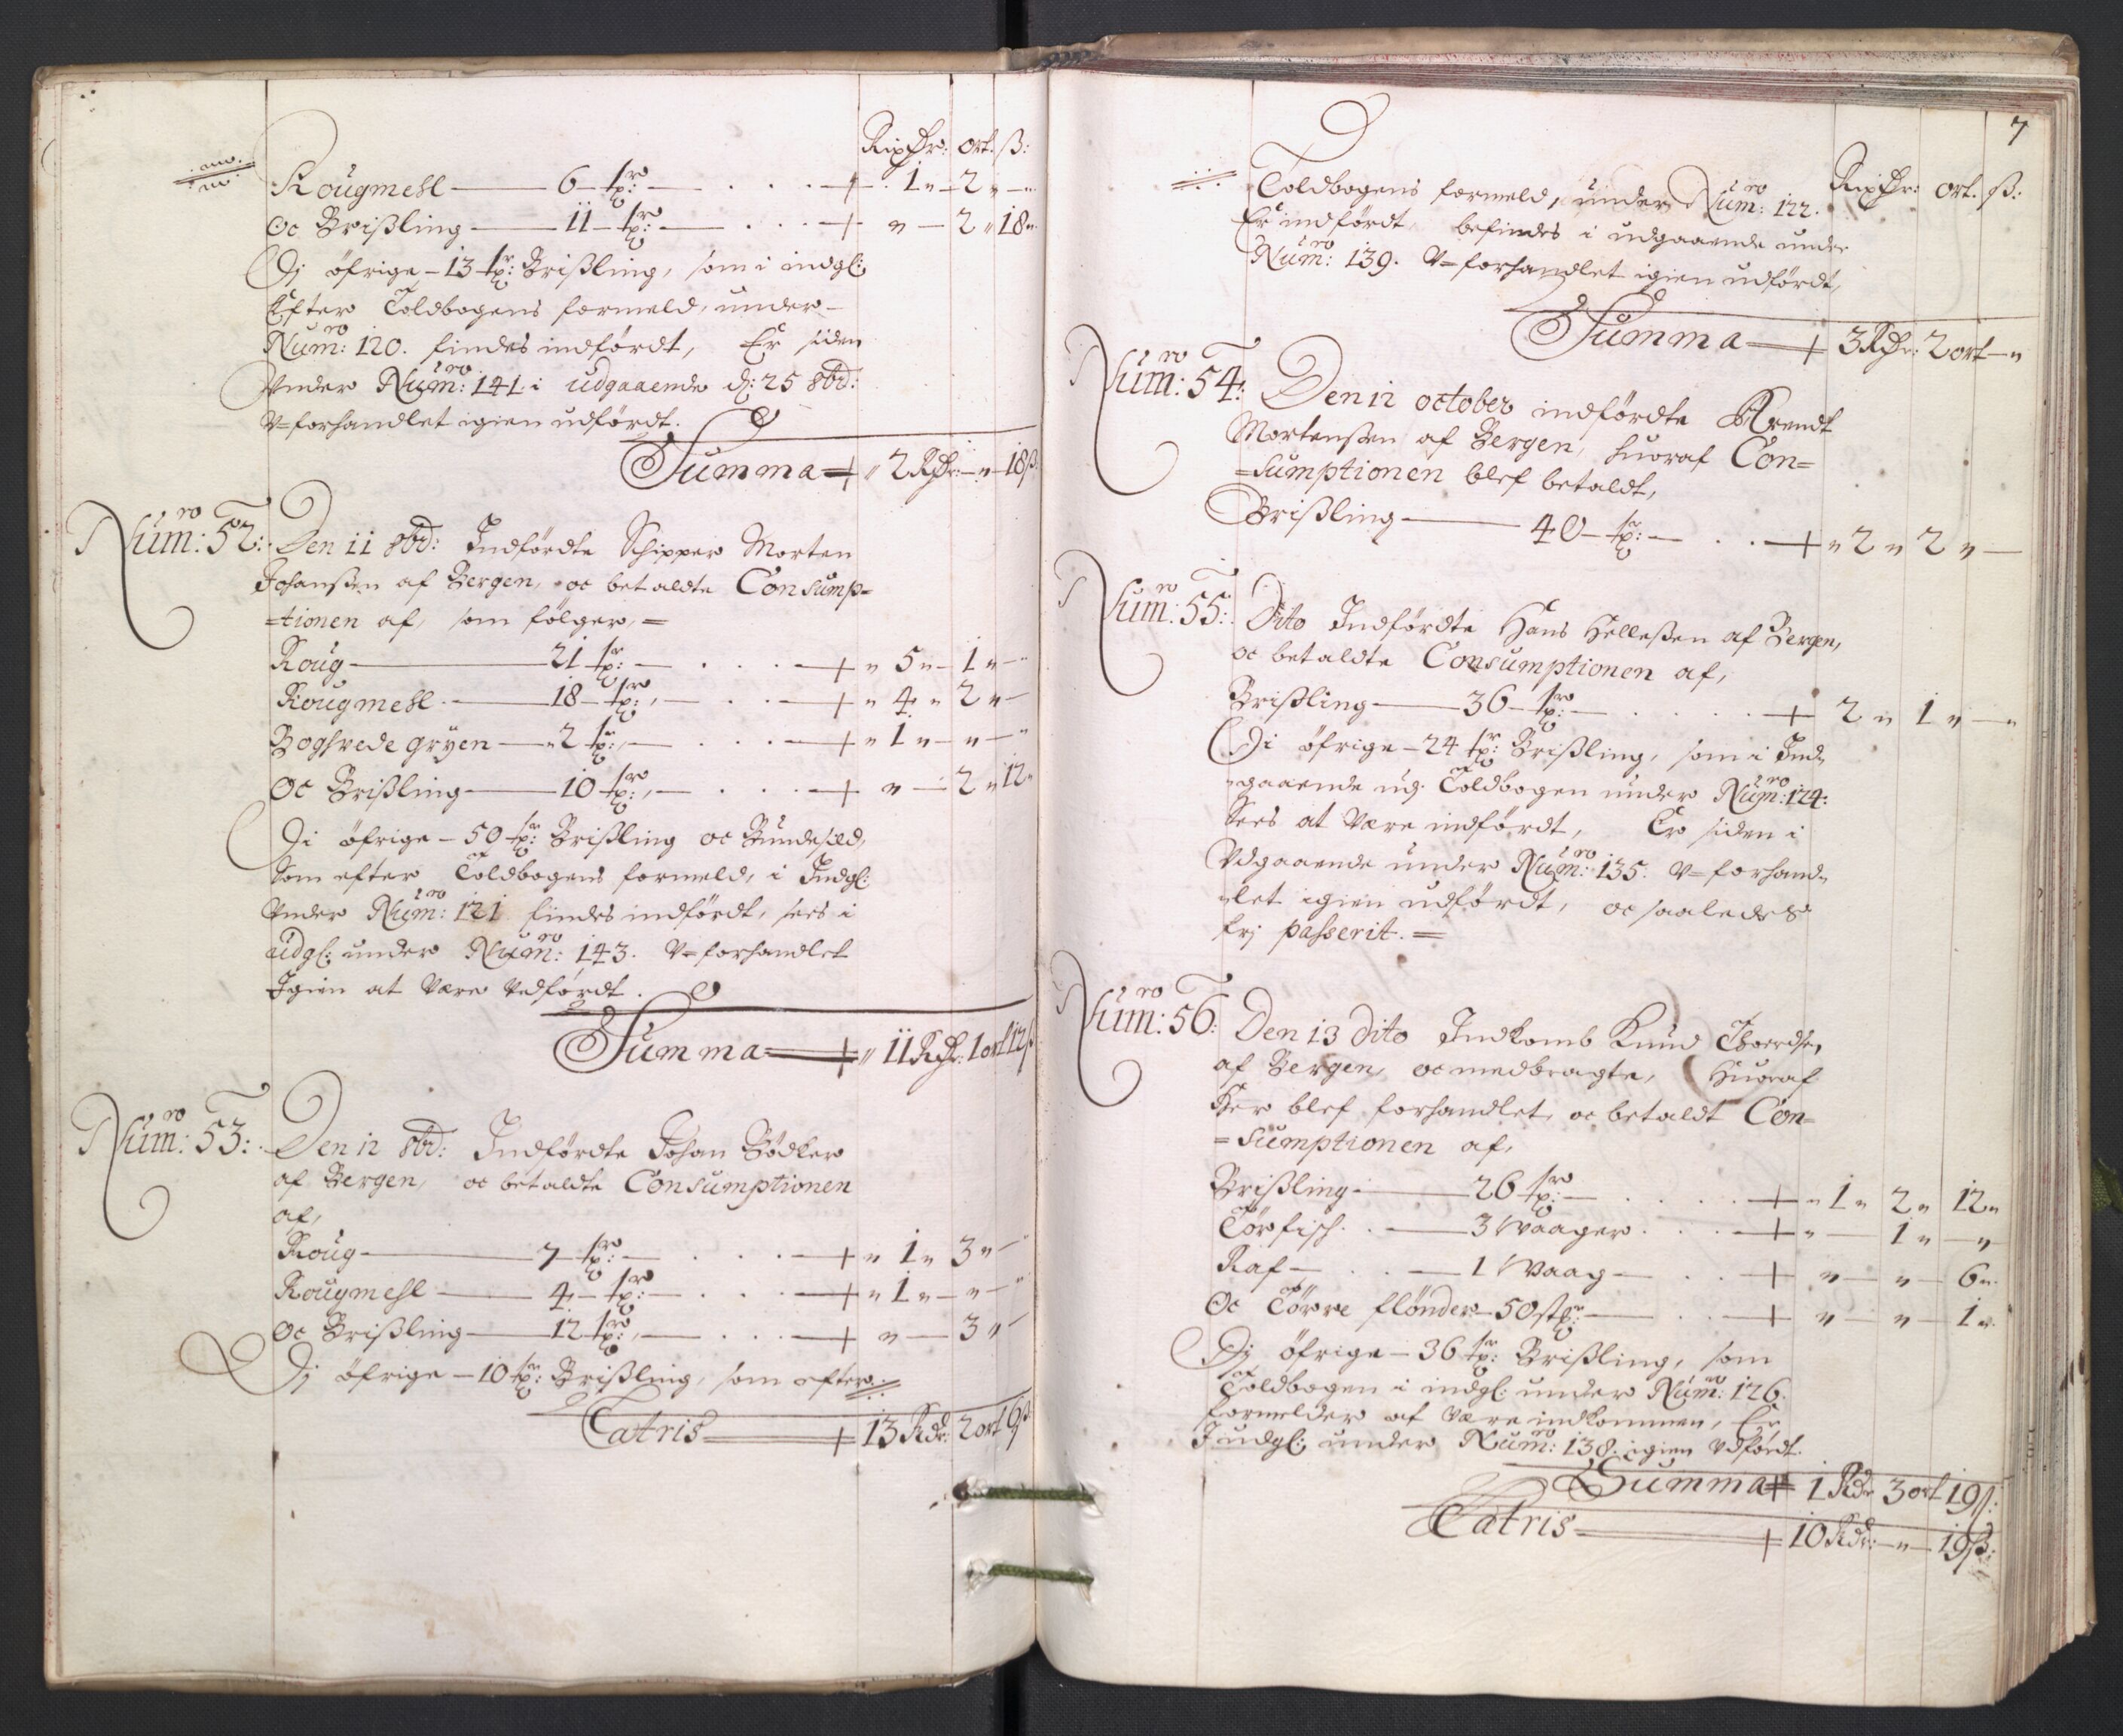 Rixdr: ort. ß:
Rougmehl — 6 tr: — . . . + . 1 " 2 " — "
Oc Brißling — 11 tr: — . . . + " — 2 " 18 "
Dj öfrige – 13 tr: Brißling, som i indgl:
Efter Toldbogens formeld, under
Num:ro 120. findes indfördt, Er siden
Vnder Num:ro 141. i udgaaende d: 25 8br:
V=forhandlet igien udfördt.
Summa + " 2 Rdr: — " — 18 ß:
Num:ro 52: Den 11 8br: Indfördte Schipper Morten
Johanßen af Bergen, oc betaldte Consump=
=tionen af, som fölger, =
Roug — 21 tr: — . . . + " 5 " — 1 " — "
Rougmehl. — 18 tr: — . . + " 4 " 2 " —
Boghvede gryen — " 2 tr: — . . . + " 1 " — " — "
Oc Brißling — 10 tr: — . . . + " — 2 " 12 "
Di öfrige – 50 tr: Brißling oc Bundesild,
Som efter Toldbogens formeld, i Indgl:
Vnder Num:ro 121 findes indfördt, sees i
udgl: under Num:ro 143. V=forhandlet
Igien at Være Vdfördt.
Summa + " 11 Rdr: 1 ort 12 ß
Num:ro 53: Den 12 8br: Indfördte Johan Bödker
af Bergen, oc betaldte Consumptionen
af,
Roug — 7 tr: — . . . + " 1 " 3 " — "
Rougmehl — 4 tr: — . . . + " 1 " — " — "
Oc Brißling — 12 tr: — . . . + " — 3 " —
Dj öfrige – 10 tr: Brißling, som efter
Latris + 13 Rdr: 2 ort 6 ß
7
Rixdr: ort. ß:
Toldbogens formeld, under Num:ro 122.
Er indfördt, befindes i udgaaende under
Num:ro 139. V=forhandlet igien udfördt,
Summa + 3 Rdr: 2 ort — "
Num:ro 54: Den 12 october indfördte Arendt
Mortensen af Bergen, huoraf Con=
=sumptionen blef betaldt,
Brißling — 40 tr: — . . + " 2 " 2 " —
Num:ro 55: Dito Indfördte Hans Helleßen af Bergen,
oc betaldte Consumptionen af,
Brißling — 36 tr: — . . . . + 2 " 1 " — "
Di öfrige – 24 tr: Brißling, som i Ind
gaaende Toldbogen under Num:ro 124:
Sees at Være indfördt, Er siden i
Vdgaaende under Num:ro 135. V=forhand
let igien udfördt, oc saaledes
frj passerit. =
Num:ro 56: Den 13 Dito Indkomb Knud
af Bergen, oc medbragte, Huoraf
Her blef forhandlet, oc betaldt Con=
=sumptionen af,
Brißling — 26 tr: — . . . . + " 1 " 2 " 12 "
Törfisch. . — 3 Waager . . . + " — 1 " — "
Raf — . . — 1 Waag — . . + " — " — 6 "
Oc Törre flönder — 50 st: — . . + " — " — 1 "
Dj öfrige – 36 tr: Brißling, som
Toldbogen i indgl: under Num:ro 126.
formelder at Være indkommen, Er
I udgl: under Num:ro 138. igien Vdfördt.
Summa + 1 Rdr 3 ort 19 ß:
Latris + 10 Rdr: — " — 19 ß: